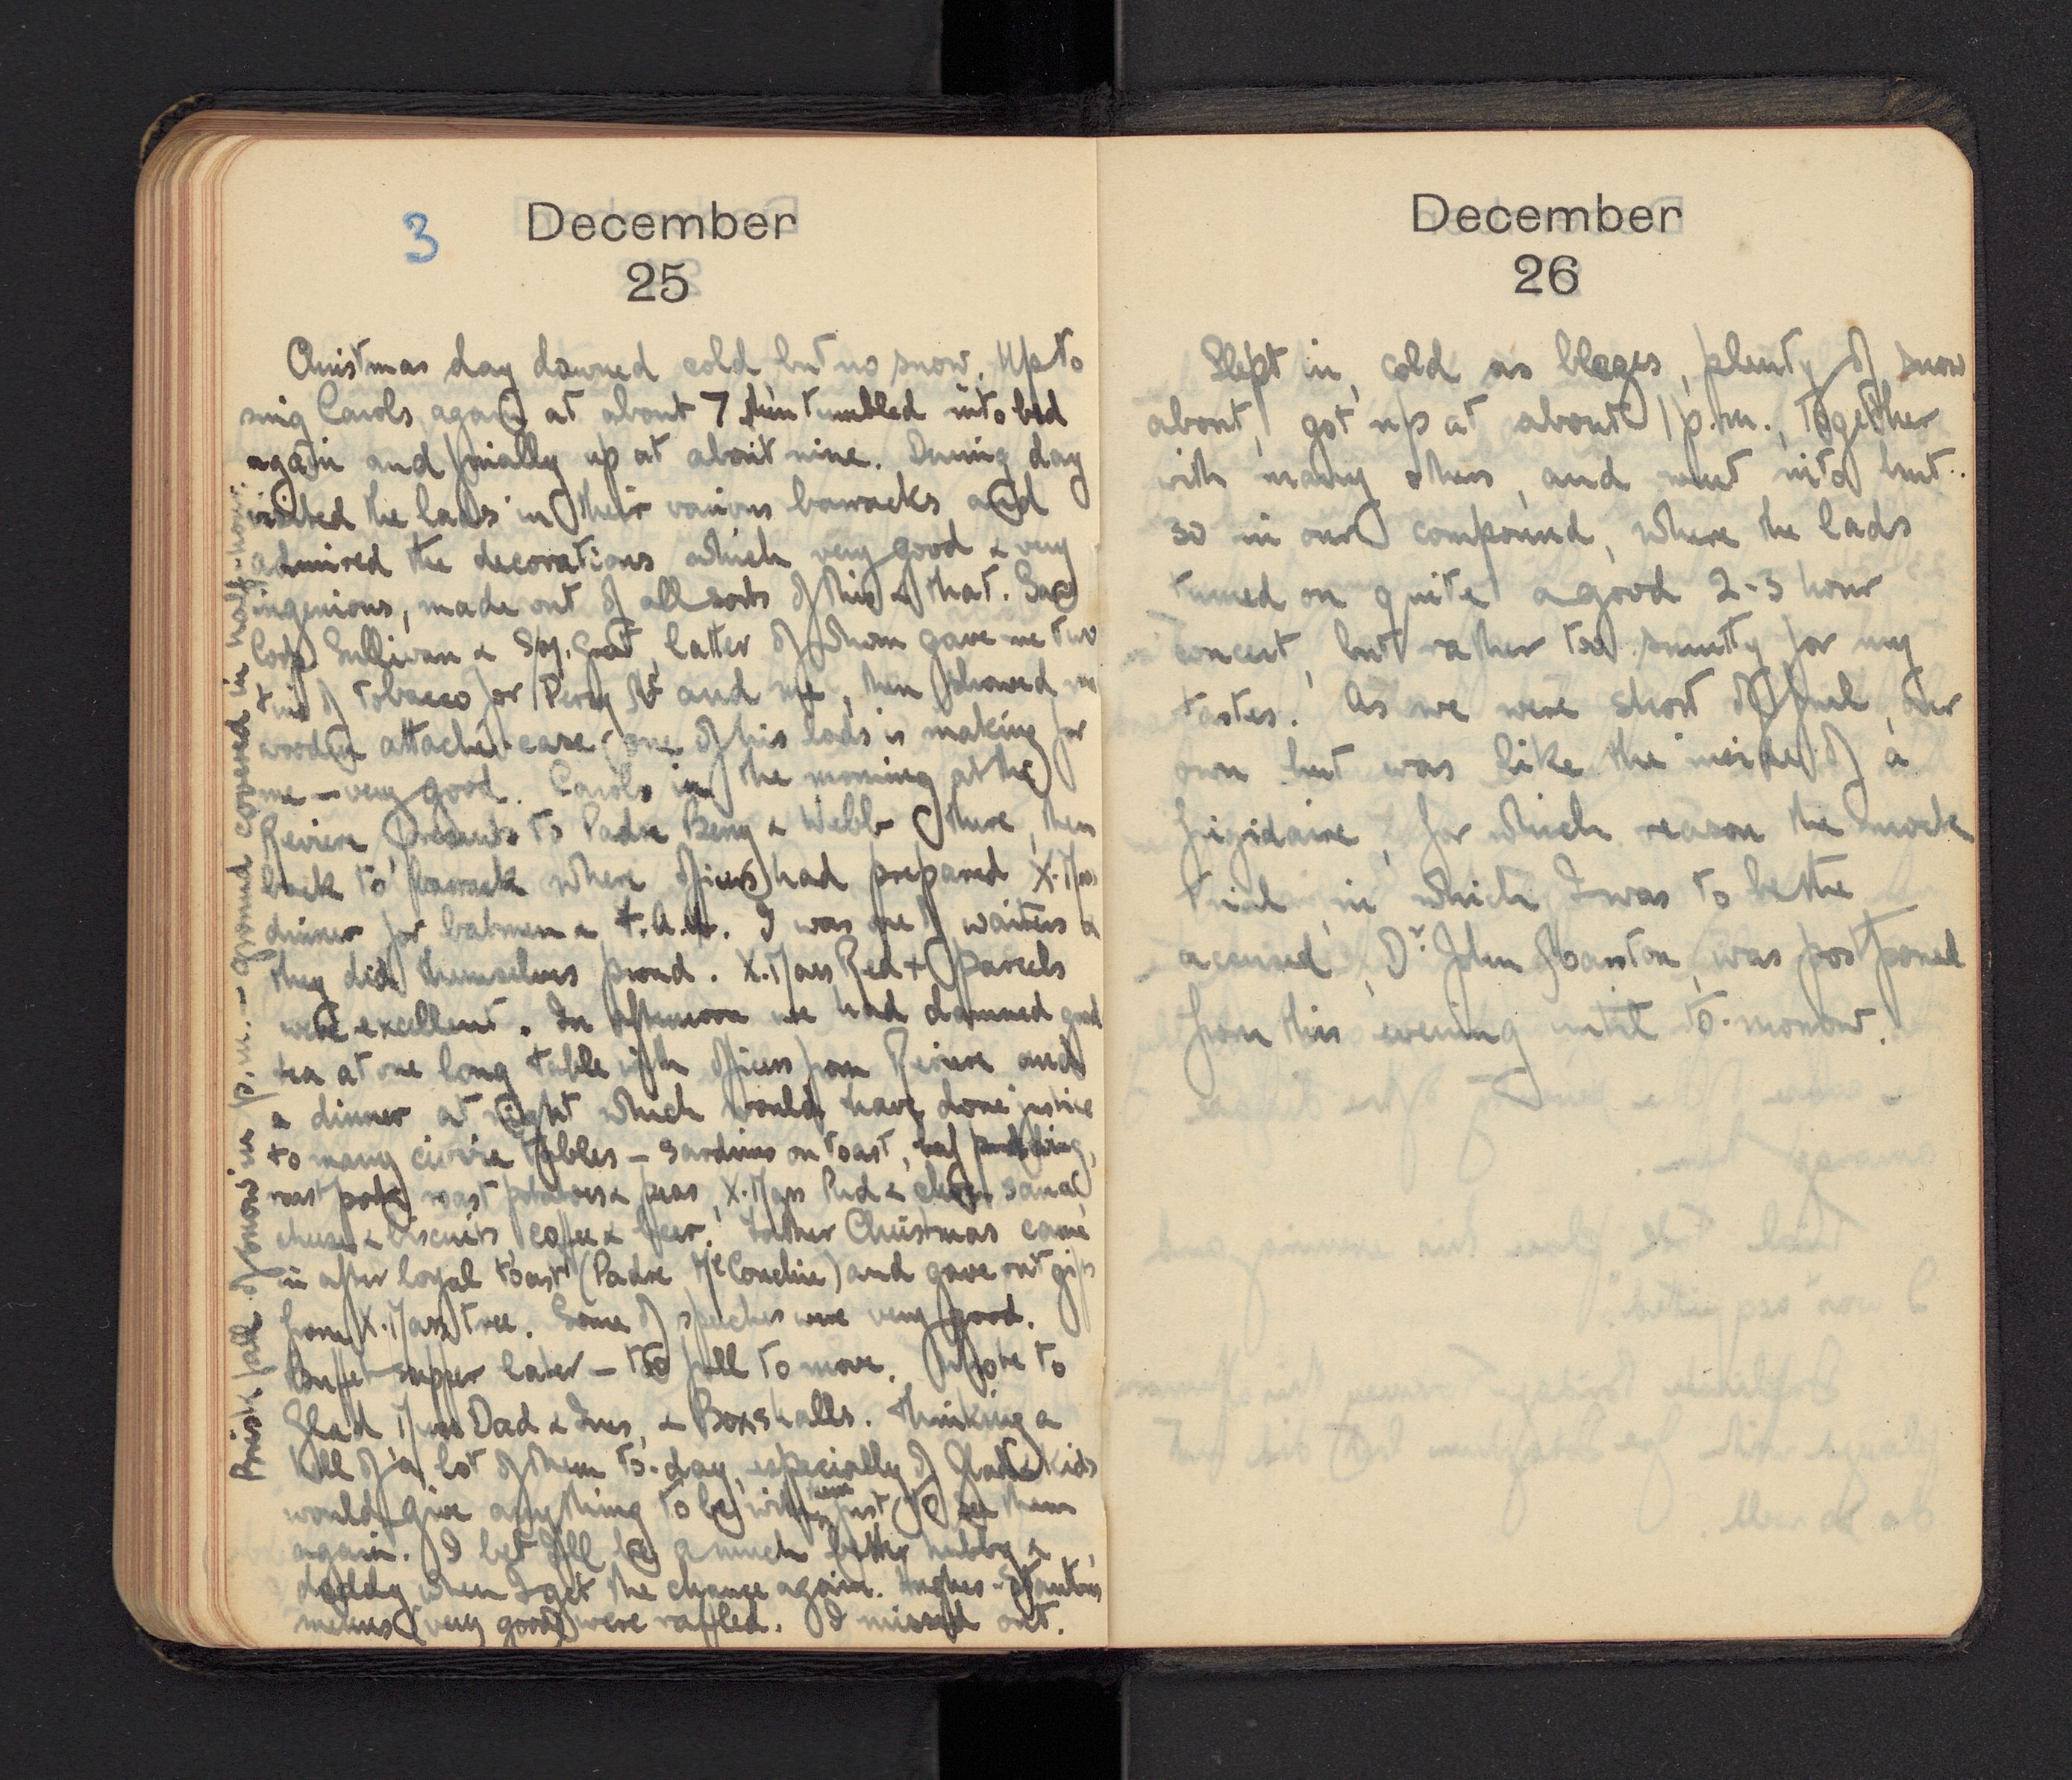 3
December
25
Christmas day dawned cold but no snow. Up to
sing Carols again at about 7 then tumbled into bed
again and finally up at about nine. During day
visited the lads in their various barracks and
admired the decorations which very good & very
ingenious, made out of all sorts of this & that. Saw
Corp Sullivan & Sgt. latter of whom gave me two
tins of tobacco for Percy and me, then showed me
wooden attaché-case one of his lads is making for
me – very good. Carols in the morning at the
Reviere presents to Padre Berry & Webb there, then
back to barrack where officers had prepared X.Mas
dinner for batmen & I was one of waiters &
they did themselves proud. X.Mas Red + parcels
were excellent. In afternoon we had damned good
tea at one long table with officers from Reviere and
a dinner at night which would have done justice
to many civvie tables – sardines on toast, pudding,
roast pork roast potatoes & peas, X.Mas Pud &
cheese & biscuits, coffee & beer. Father Christmas came
in after loyal toast (Padre McConchie) and gave out gifts
from X.Mas tree. Some of speeches were very good.
Buffet supper later – too full to move. Wrote to
Glad Mum Dad & & Boxshalls. Thinking a
hell of a lot of them to-day, especially of Glad & kids
would give anything to be with them just to see them
again. I bet I'll be a much better hubby &
daddy when I get the chance again. Hughes-Stanton's
menus (very good) were raffled. I missed out.
Brisk fall of snow in p.m. – ground covered in half-hour.
December
26
Slept in, cold as blazes, plenty of snow
about, got up at about 1 p.m., together
with many others, and went into hut
30 in our compound, where the lads
turned on quite a good 2-3 hour
concert, but rather too smutty for my
tastes. As we were short of fuel, our
own hut was like the inside of a
frigidaire, for which reason the mock
trial in which I was to be the
accused, Dr. John was postponed
from this evening until to-morrow.